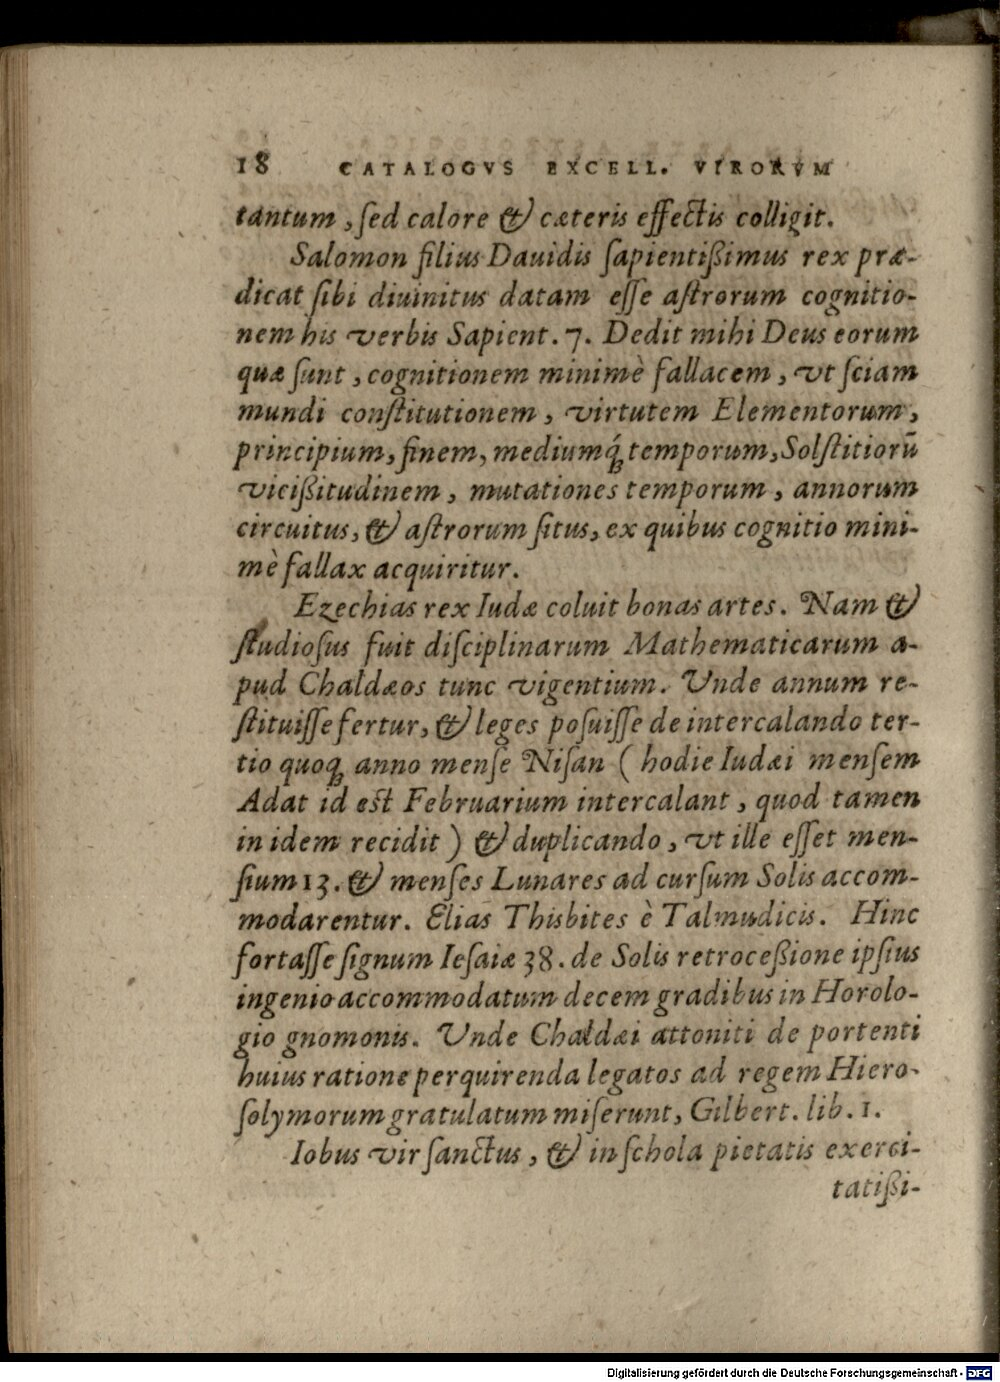 18 CATALOGVS EXCELL. VIRORVM
tantum, sed calore & cæteris effectis colligit.
Salomon filius Dauidis sapientißimus rex præ-
dicat sibi diuinitus datam esse astrorum cognitio-
nem his verbis Sapient. 7. Dedit mihi Deus eorum
quæ sunt, cognitionem minimè fallacem, vt sciam
mundi constitutionem, virtutem Elementorum,
principium, finem, mediumq́; temporum, Solstitiorū
vicißitudinem, mutationes temporum, annorum
circuitus, & astrorum situs, ex quibus cognitio mini-
mè fallax acquiritur.
Ezechias rex Iudæ coluit bonas artes. Nam &
studiosus fuit disciplinarum Mathematicarum a-
pud Chaldæos tunc vigentium. Unde annum re-
stituisse fertur, & leges posuisse de intercalando ter-
tio quoq; anno mense Nisan ( hodie Iudæi mensem
Adat id est Februarium intercalant, quod tamen
in idem recidit ) & duplicando, vt ille esset men-
sium 13. & menses Lunares ad cursum Solis accom-
modarentur. Elias Thisbites è Talmudicis. Hinc
fortasse signum Iesaiæ 38. de Solis retroceßione ipsius
ingenio accommodatum decem gradibus in Horolo-
gio gnomonis. Unde Chaldæi attoniti de portenti
huius ratione perquirenda legatos ad regem Hiero-
solymorum gratulatum miserunt, Gilbert. lib. 1.
Iobus vir sanctus, & in schola pietatis exerci-
tatißi-
Digitalisierung gefördert durch die Deutsche Forschungsgemeinschaft - DFG